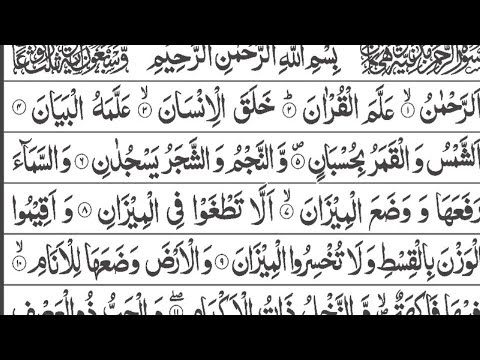 بِسْمِ اللهِ الرَّحْمٰنِ الرَّحِيْمِ
اَلرَّحْمٰنُ ۙ﴿۱﴾ عَلَّمَ الْقُرْاٰنَ ؕ﴿۲﴾ خَلَقَ الْاِنْسَانَ ۙ﴿۳﴾ عَلَّمَهُ الْبَيَانَ ﴿۴﴾
اَلشَّمْسُ وَ الْقَمَرُ بِحُسْبَانٍ ﴿۵﴾ وَّ النَّجْمُ وَ الشَّجَرُ يَسْجُدٰنِ ﴿۶﴾ وَ السَّمَآءَ
رَفَعَهَا وَ وَضَعَ الْمِيْزَانَ ۙ﴿۷﴾ اَلَّا تَطْغَوْا فِى الْمِيْزَانِ ﴿۸﴾ وَ اَقِيْمُوا
الْوَزْنَ بِالْقِسْطِ وَ لَا تُخْسِرُوا الْمِيْزَانَ ﴿۹﴾ وَ الْاَرْضَ وَضَعَهَا لِلْاَنَامِ ۙ﴿۱۰﴾
فِيْهَا فَاكِهَةٌ ۙ وَّ النَّخْلُ ذَاتُ الْاَكْمَامِ ۖ﴿۱۱﴾ وَ الْحَبُّ ذُو الْعَصْفِ